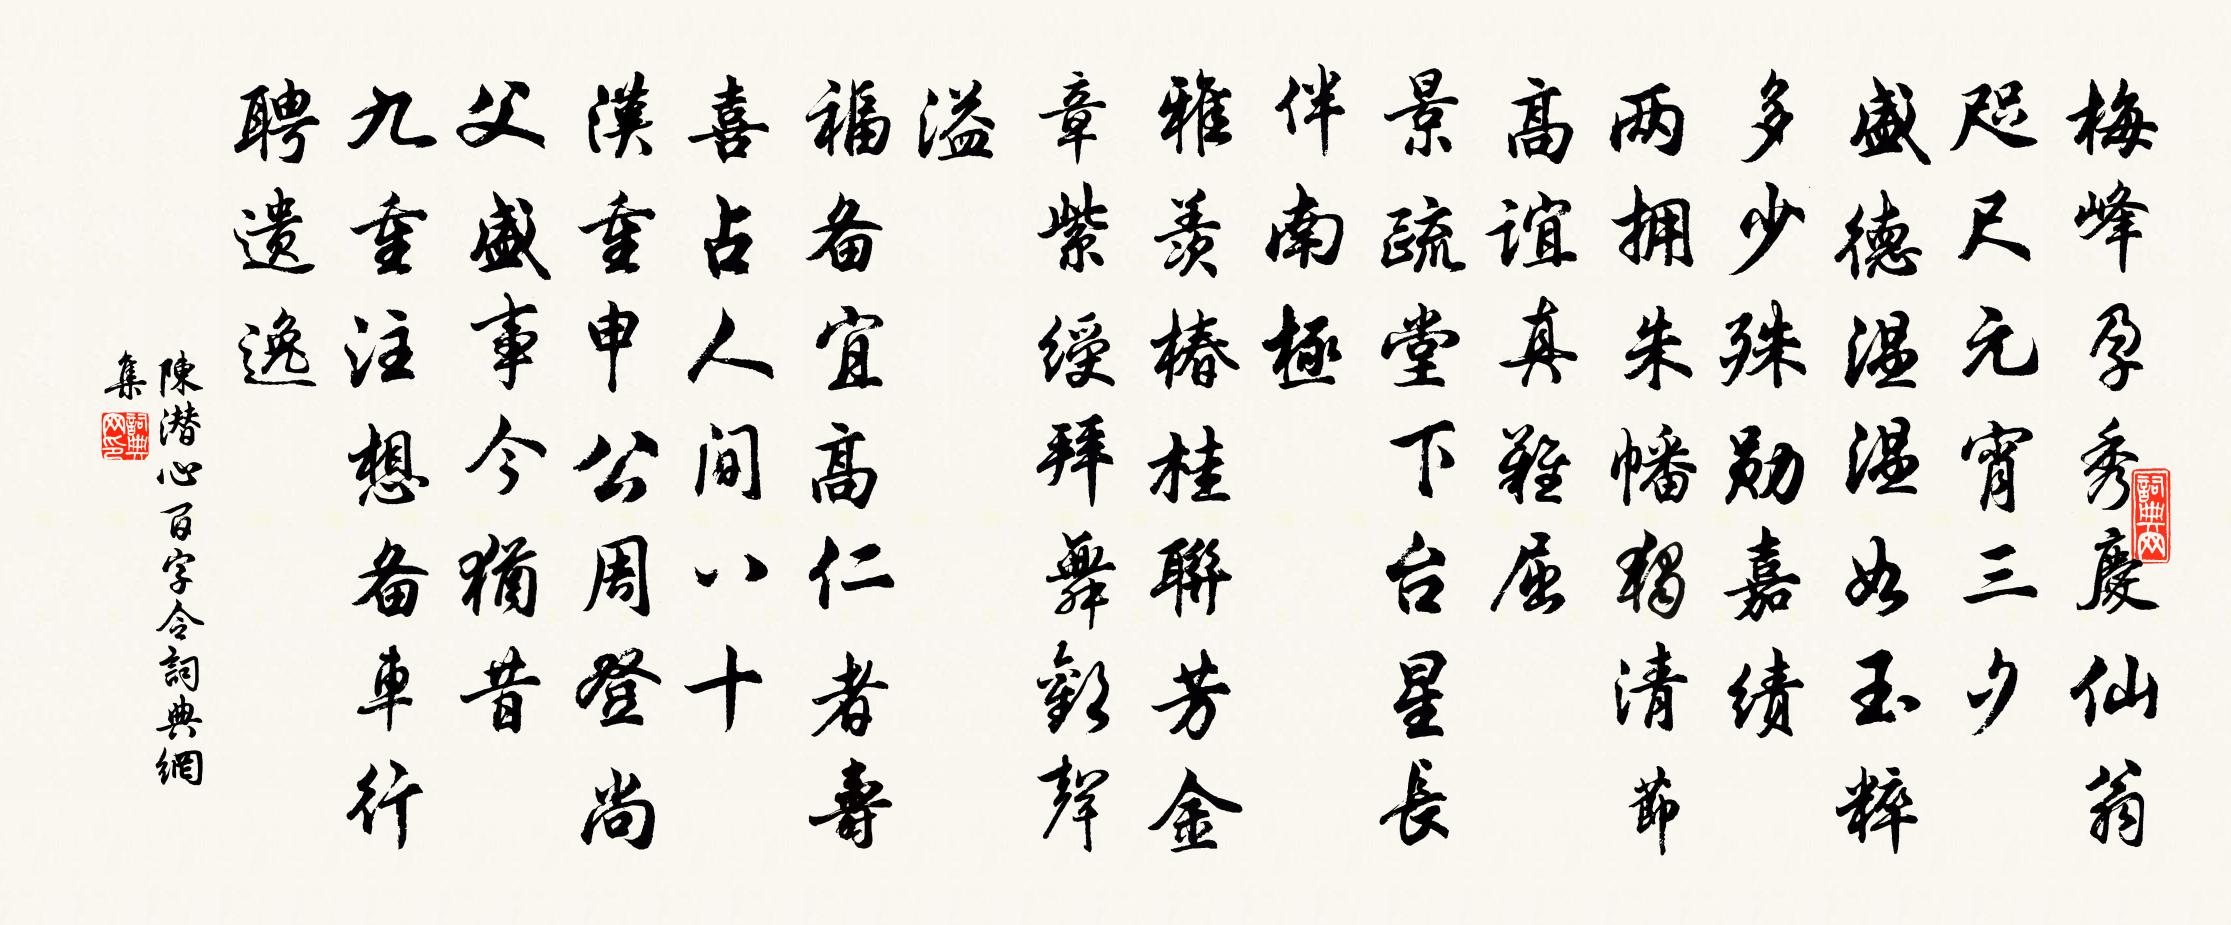 梅峰孕秀慶仙翁
咫尺元宵三夕
盛德温温如玉粹
多少殊勋嘉績
两拥朱幡獨清節
高谊真難屈
景疏堂下台星長
伴南極
雅羡椿桂聯芳金
章紫绶拜舞歡聲
溢
福备宜高仁者壽
喜占人间八十
漢重申公周登尚
父盛事今猶昔
九重注想备車行
聘遗逸
陳潜心百字令詞典網
集
詞典网
詞典网印